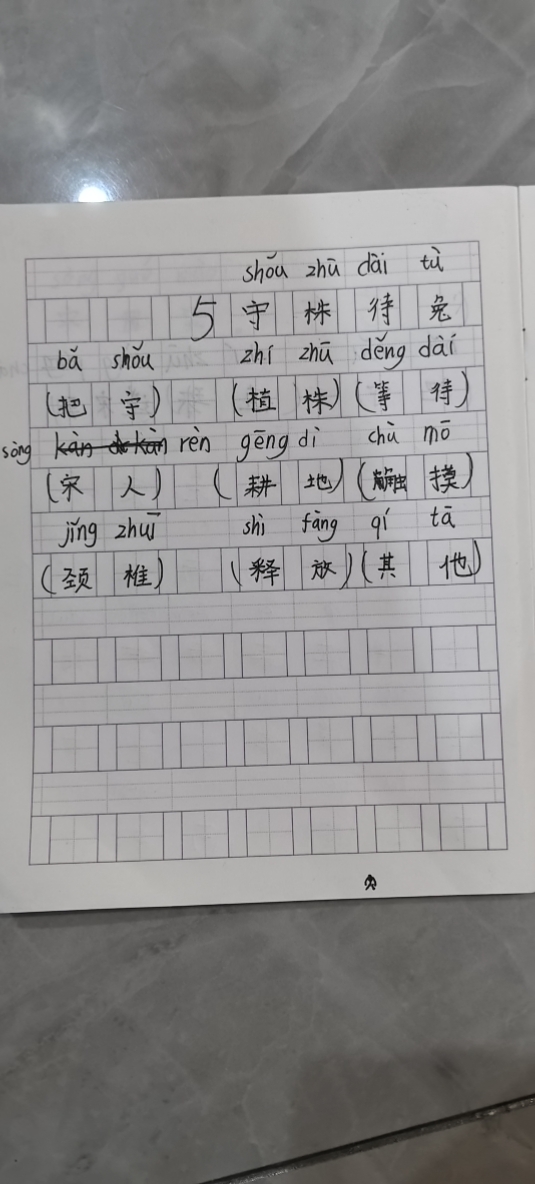 shǒu zhū dài tù
5 守株待兔
bǎ shǒu zhí zhū děng dài
(把守) (植株) (等待)
sòng rèn gēng dì chù mō
(宋人) (耕地) (触摸)
jǐng zhuī shì fàng qí tā
(颈椎) (释放) (其他)